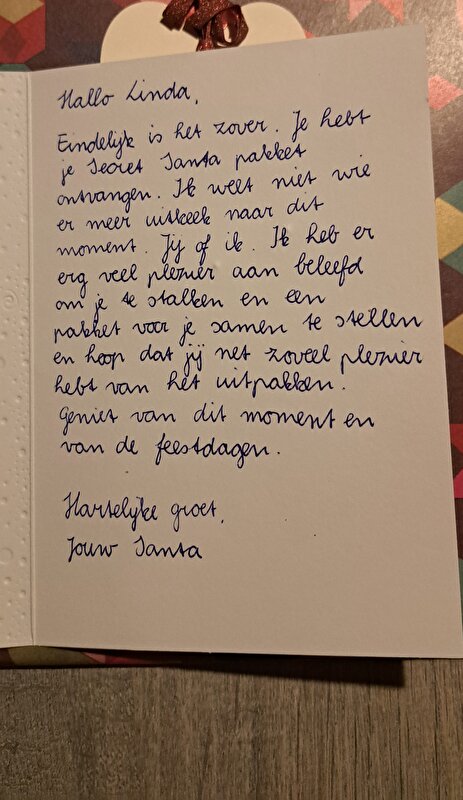 Hallo Linda,
Eindelijk is het zover. Je hebt
je Secret Santa pakket
ontvangen. Ik weet niet wie
er meer uitkeek naar dit
moment. Jij of ik. Ik heb er
erg veel plezier aan beleefd
om je te stalken en een
pakket voor je samen te stellen
en hoop dat jij net zoveel plezier
hebt van het uitpakken.
Geniet van dit moment en
van de feestdagen.
Hartelijke groet,
Jouw Santa